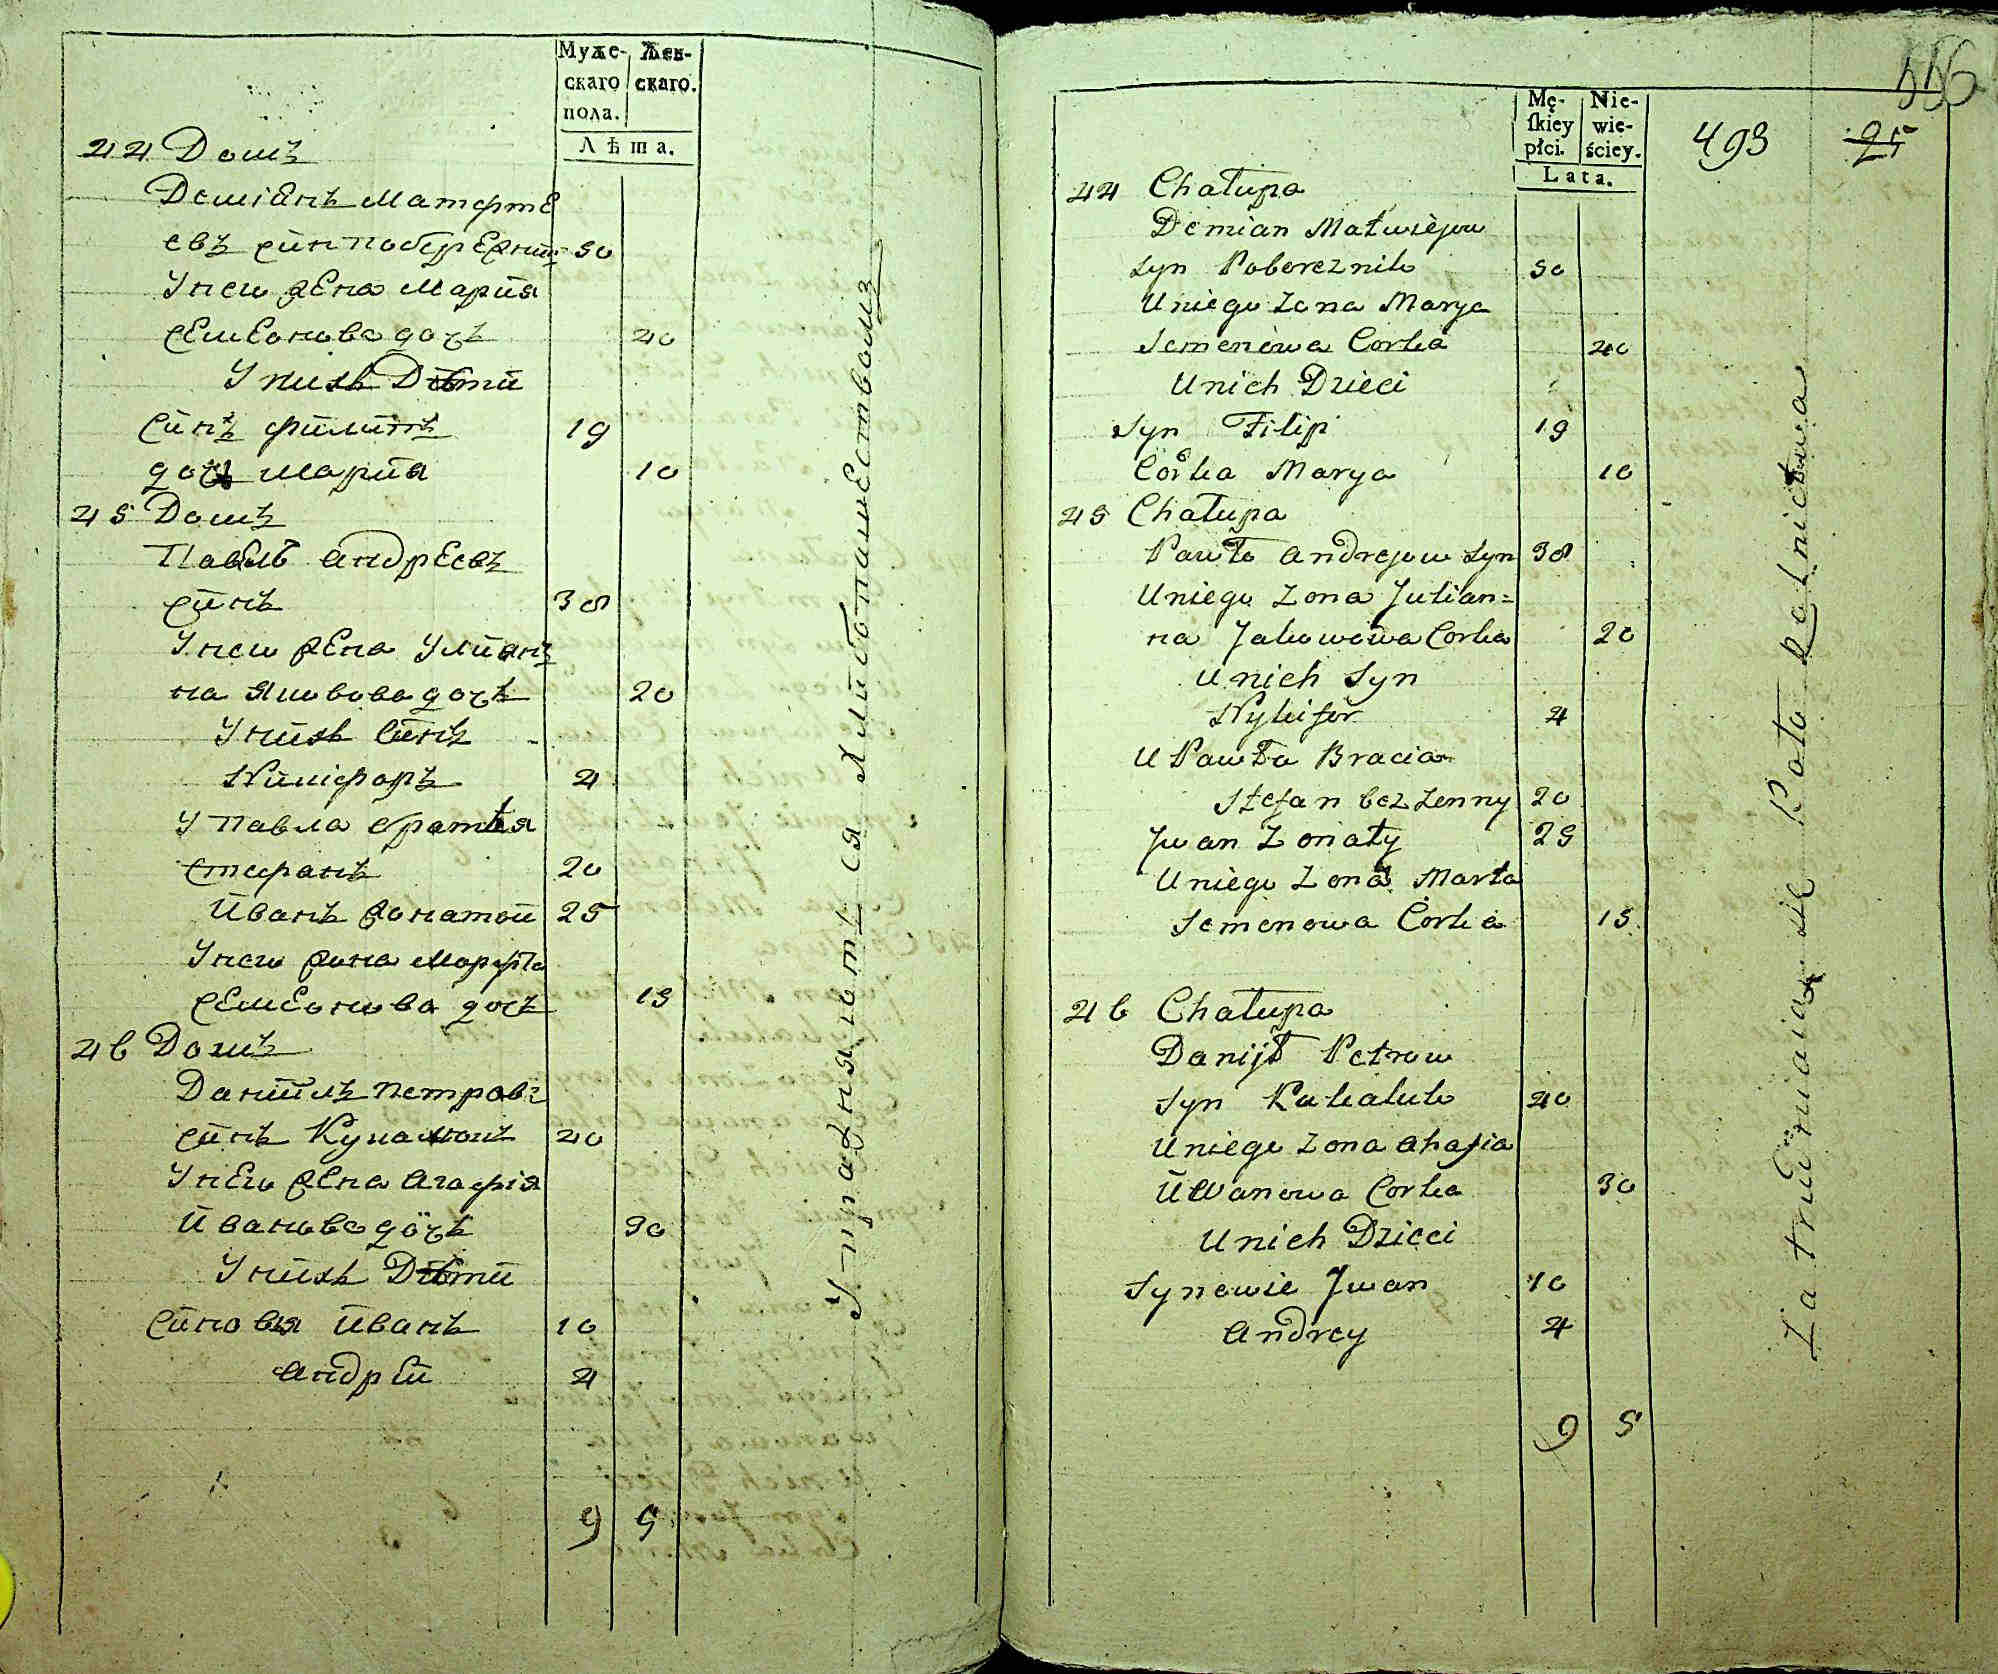 Муже- Жен-
скаго скаго.
пола.
Лѣта.
44 Домъ
Деміанъ Матфѣе
евъ синъ побережник 50
У нею жена Мария
семенова дочъ 40
У нихъ Дѣти
Синъ Филипъ 19
дочъ Мария 10
45 Домъ
Павелъ Андреевъ
синъ 38
У нею жена Улиан
на Яковова дочъ 20
У нихъ Синъ
Никифоръ 4
У Павла братья
Стефанъ 20
Иванъ жонатой 25
У нею жона Марфта
семенова дочъ 15
46 Домъ
Даниилъ Петровъ
синъ Кукалюкъ 40
У нею жена Агафія
Иванова дочъ 30
У нихъ Дѣти
Синовя Иванъ 10
Андрей 4
9 5
Упражняются хлѣбопашествомъ
556
Mę- Nie-
skiey wie-
płci. ściey.
Lata.
493 25
44 Chałupa
Demian Matwiejow
Syn Pobereznik 50
U niego Zona Marya
Semenowa Corka 40
U nich Dzieci
Syn Filip 19
Corka Marya 10
45 Chałupa
Pawło Andrejow Syn 38
U niego Zona Julian=
na Jakowowa Corka 20
U nich Syn
Nykifor 4
U Pawła Bracia
Stefan bez Zenny 20
Jwan Zonaty 25
U niego Zona Marta
Semenowa Corka 15
46 Chałupa
Daniił Petrow
Syn Kukaluk 40
U niego Zona Ahafia
Iwanowa Corka 30
U nich Dzieci
Synowie Jwan 10
Andrey 4
9 5
Zatrudniaią się Rolnictwa